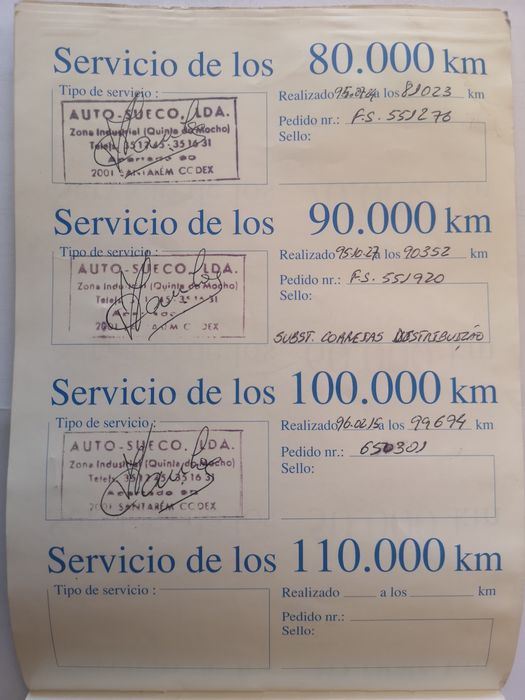 Servicio de los 80.000 km
Tipo de servicio :
AUTO-SUECO, LDA.
Zona Industrial (Quinta do Mocho)
Apartado 90
2001 SANTARÉM CODEX
Realizado a los 81023 km
Pedido nr.: FS. 551276
Sello:
Servicio de los 90.000 km
Tipo de servicio :
AUTO-SUECO, LDA.
Zona Industrial (Quinta do Mocho)
Realizado 95.10.27 a los 90352 km
Pedido nr.: FS. 551920
Sello:
SUBST. CORREIAS DISTRIBUIÇÃO
Servicio de los 100.000 km
Tipo de servicio :
AUTO-SUECO, LDA.
Zona Industrial (Quinta do Mocho)
Telefs. 35 17 45 - 35 16 31
Apartado 90
2001 SANTARÉM CODEX
Realizado 96.02.15 a los 99674 km
Pedido nr.: 650301
Sello:
Servicio de los 110.000 km
Tipo de servicio :
Realizado a los km
Pedido nr.:
Sello: